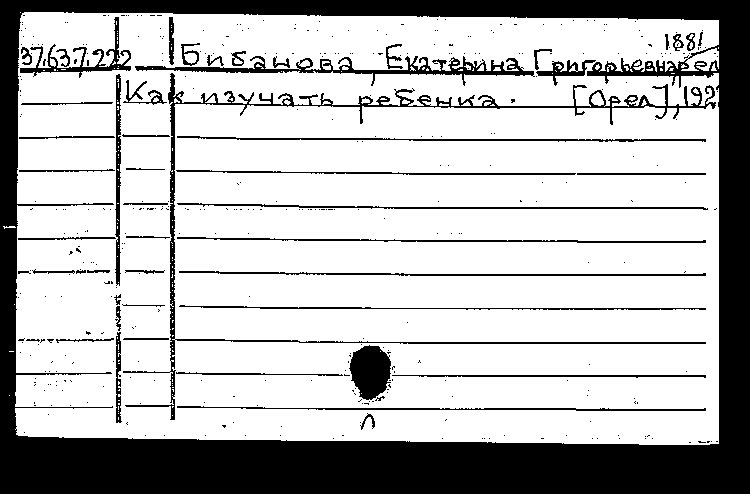 1881
37.63.7.222 Бибанова, Екатерина Григорьевна, ред
Как изучать ребенка. [Орел], 192